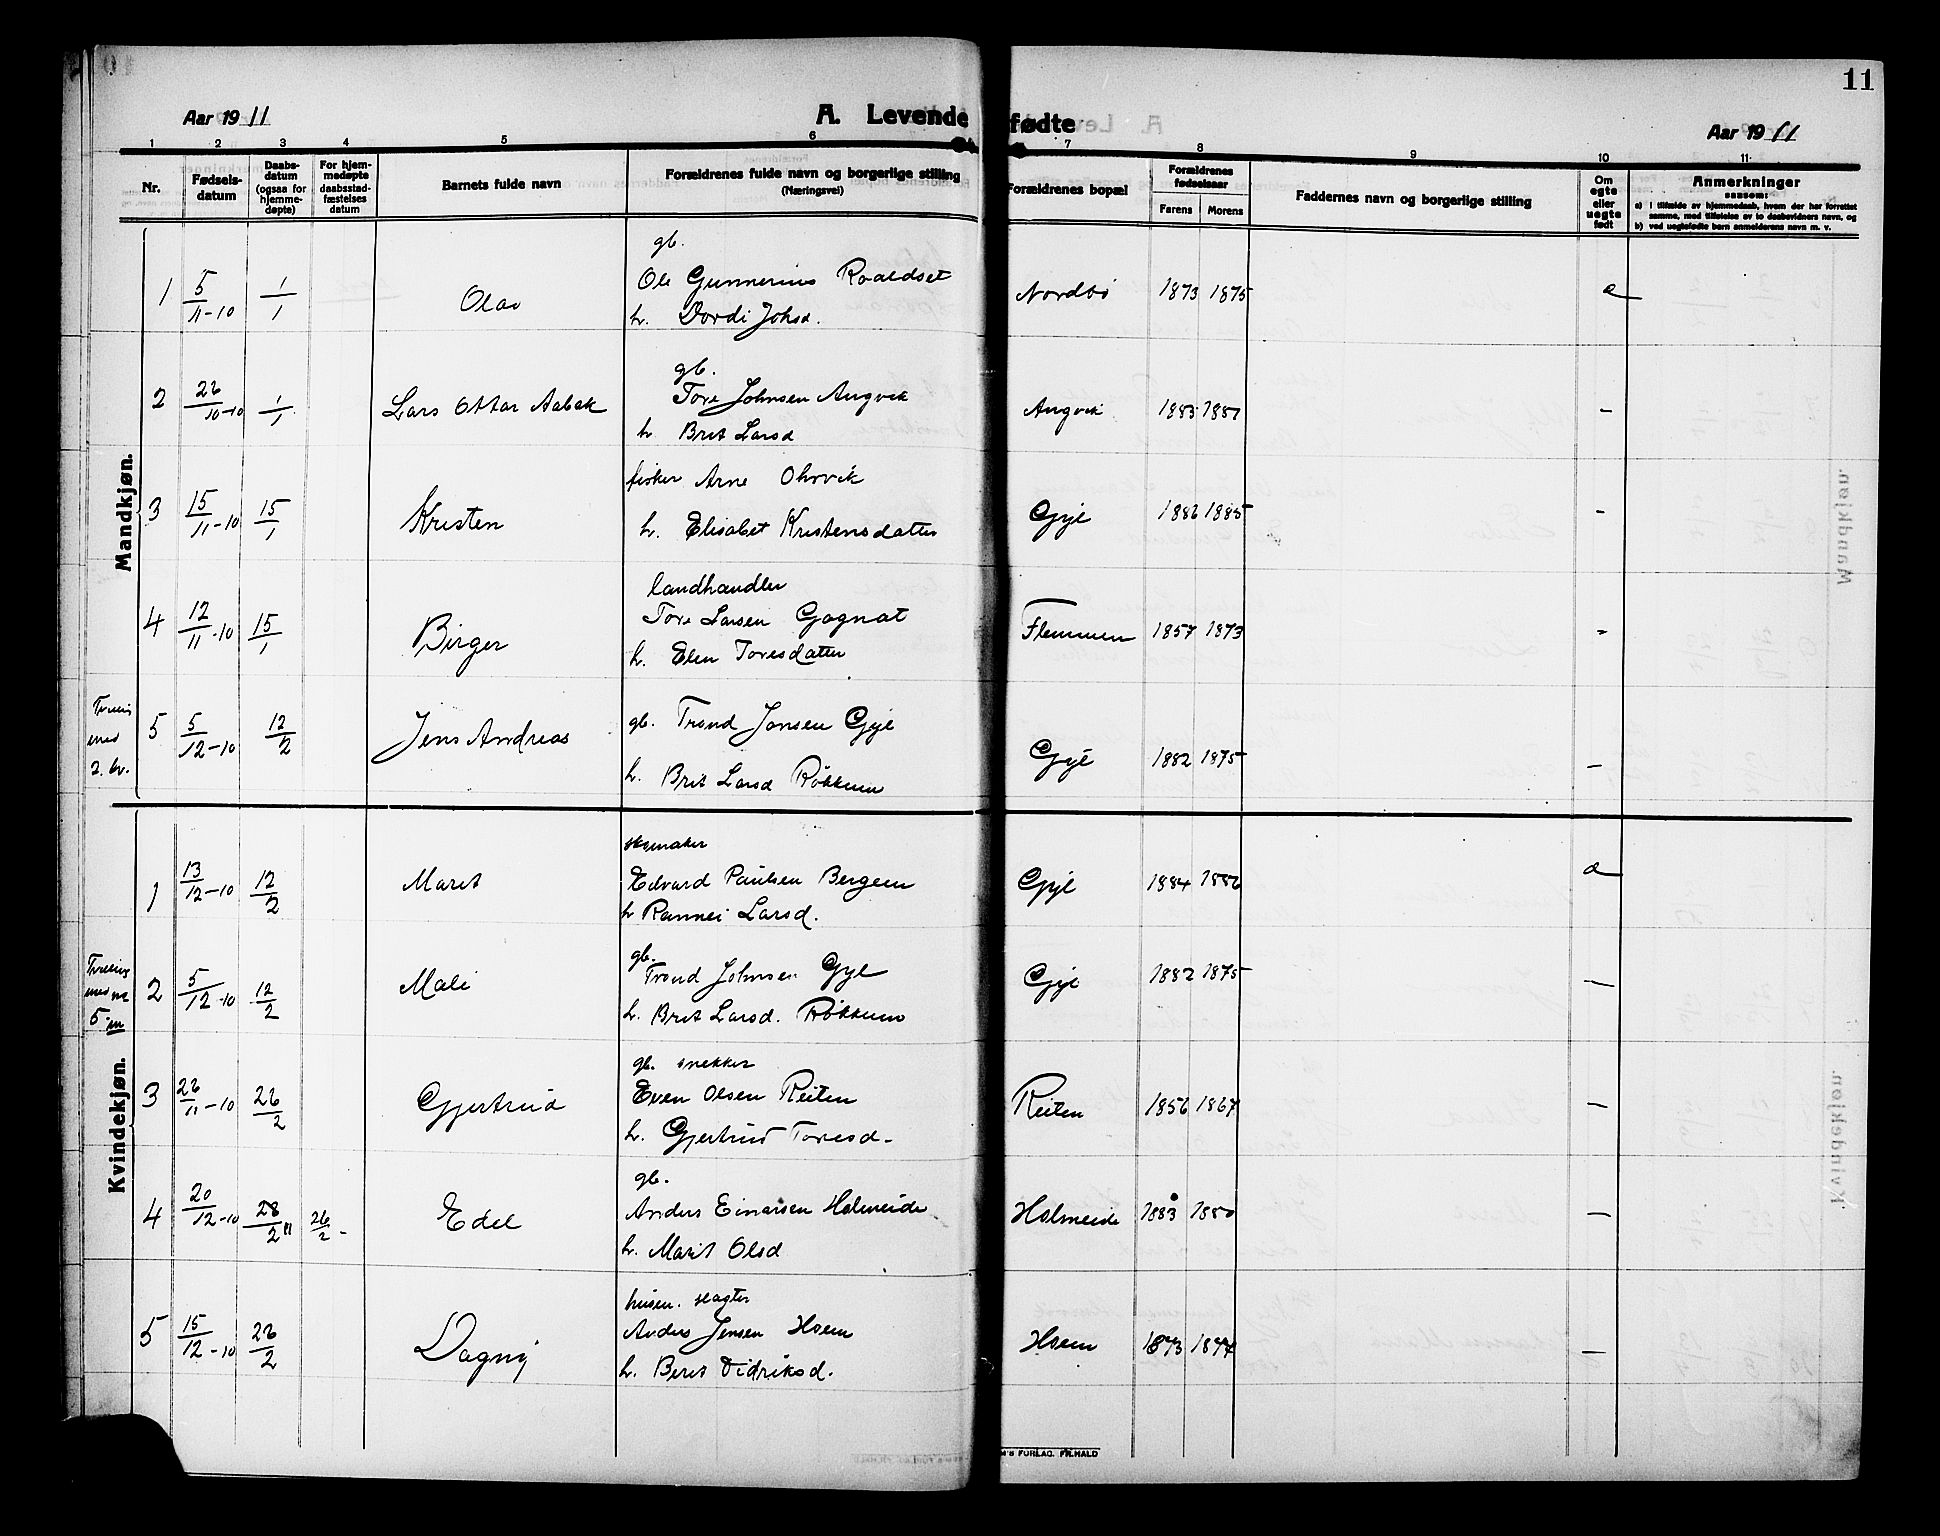 11
Aar 1911
A. Levende fødte
Aar 1911
1 2 3 4 5 6 7 8 9 10 11
Nr.
Fødsels-
datum
Daabs-
datum
(ogsaa for
hjemme-
døpte)
For hjem-
medøpte
daabsstad-
fæstelses
datum
Barnets fulde navn
Forældrenes fulde navn og borgerlige stilling
(Næringsvei)
Forældrenes bopæl
Forældrenes
fødselsaar
Farens Morens
Faddernes navn og borgerlige stilling
Om
egte
eller
uegte
født
Anmerkninger
saasom:
a) i tilfælde av hjemmedaab, hvem der har forrettet
samme, med tilføielse av to daabsvidners navn, og
b) ved uegtefødte barn anmelderens navn m. v.
Mandkjøn.
gb.
1 5/11-10 1/1 Olav Ole Gunnerius Roaldset Nordbø 1873 1875 a
h. Dordi Johsd.
gb.
2 26/10-10 1/1 Lars Ottar Aabak Tore Johnsen Angvik Angvik 1883 1881 –
h Brit Larsd
fisker Arne Ohrvik
3 15/11-10 15/1 Kristen Gyl 1886 1885 –
h. Elisabet Kristensdatter
landhandler
4 12/11-10 15/1 Birger Tore Larsen Gagnat Flemmen 1857 1873 –
h. Elen Toresdatter
Tvilling
med
2. kv.
5 5/12-10 12/2 Jens Andreas gb. Trond Jonsen Gyl Gyl 1882 1875 –
h. Brit Larsd Røkkum
Kvindekjøn.
skomaker
1 13/12-10 12/2 Marit Edvard Paulsen Bergem Gyl 1884 1886 a
h Rannei Larsd.
Tvilling
med nr
5. m
gb.
2 5/12-10 12/2 Mali Trond Johnsen Gyl Gyl 1882 1875 –
h. Brit Larsd. Røkkum
gb. snekker
3 26/11-10 26/2 Gjertrud Even Olsen Reiten Reiten 1856 1867 –
h. Gjertrud Toresd.
gb.
4 20/12-10 28/2 11 26/2 - Edel Anders Einarsen Holmeide Holmeide 1883 1880 –
h. Marit Olsd
husm. slagter
5 15/12-10 26/2 Dagny Anders Jensen Hoem Hoem 1873 1877 –
h. Beret Didriksd.
'S FORLAG. FR. HALD